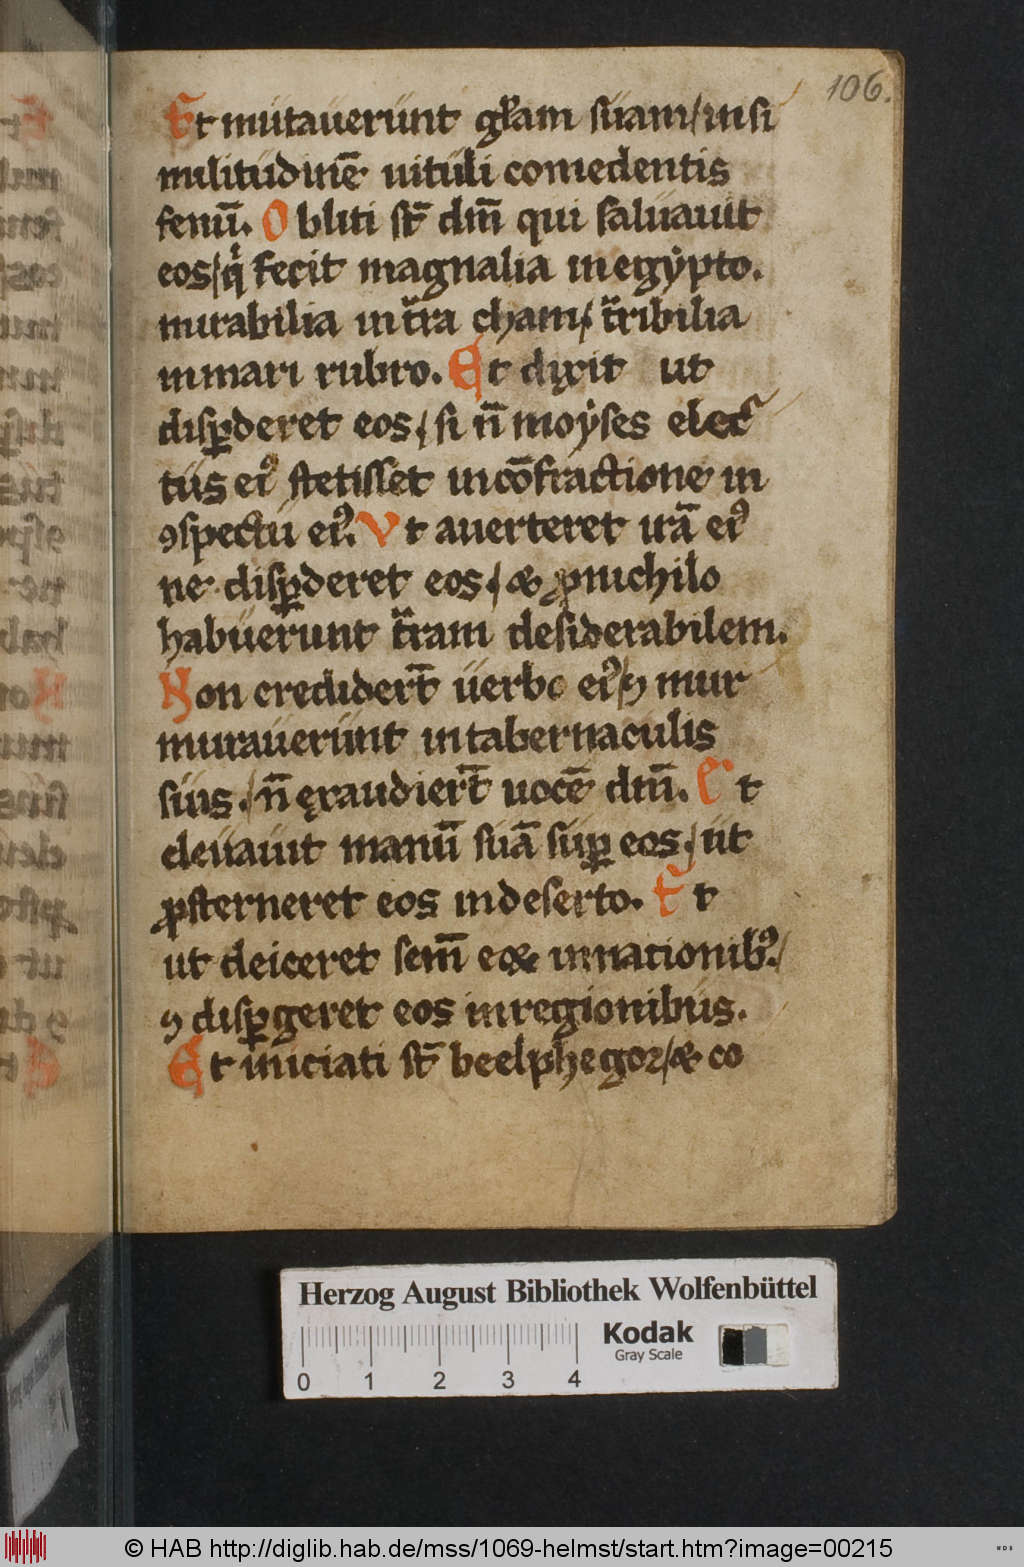 106.
Et mutauerunt gl̄am suam/ in si
militudinē uituli comedentis
fenū. Obliti st̄ dm̄ qui saluauit
eos/ qͥ fecit magnalia in egẏpto.
mirabilia in t̄ra cham/ t̄ribilia
in mari rubro. Et dixit ut
disꝑderet eos/ si n̄ moẏses elec
tus eiꝰ stetisset in cōfractione in
ꝯspectu eiꝰ. Vt auerteret irā eiꝰ
ne disꝑderet eos/ & ꝓ nichilo
habuerunt t̄ram desiderabilem.
Non credidert̄ uerbo eiꝰ/ ꝯ mur
murauerunt in tabernaculis
suis./ n̄ exaudiert̄ uocē dm̄. Et
eleuauit manū suā suꝑ eos/ ut
ꝓsterneret eos in deserto. Et
ut deiceret sem̄ eoꝝ in nationibꝰ./
ꝯ disꝑgeret eos in regionibus.
Et iniciati st̄ beelphegor/ & co
Herzog August Bibliothek Wolfenbüttel
Kodak
Gray Scale
0 1 2 3 4
© HAB http://diglib.hab.de/mss/1069-helmst/start.htm?image=00215